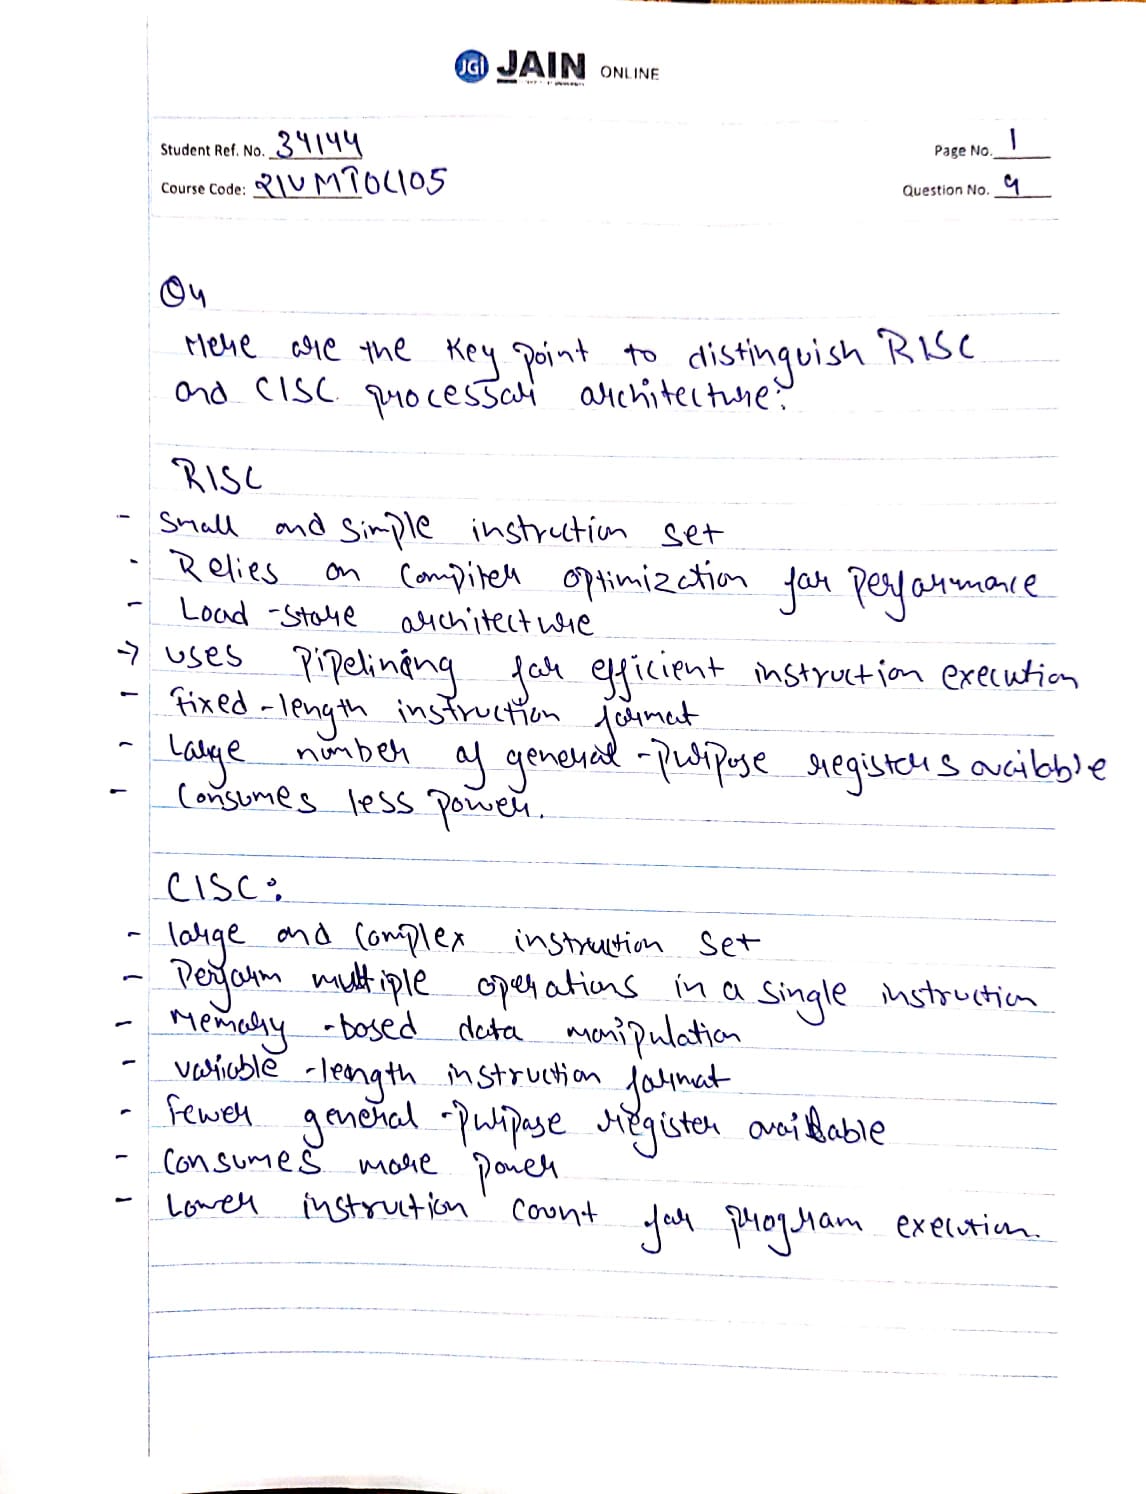 JGI JAIN ONLINE
Student Ref. No. 34144
Page No. 1
Course Code:
Question No. 4
Q4
Here are the key point to distinguish RISC
and CISC processor architecture:
RISC
- Small and simple instruction set
- Relies on Compiler optimization for performance
- Load-store architecture
→ uses pipelining for efficient instruction execution
- fixed-length instruction format
- Large number of general-purpose registers available
- Consumes less power.
CISC:
- large and Complex instruction set
- Perform multiple operations in a single instruction
- Memory-based data manipulation
- variable-length instruction format
- fewer general-purpose register available
- Consumes more power
- Lower instruction count for program execution.